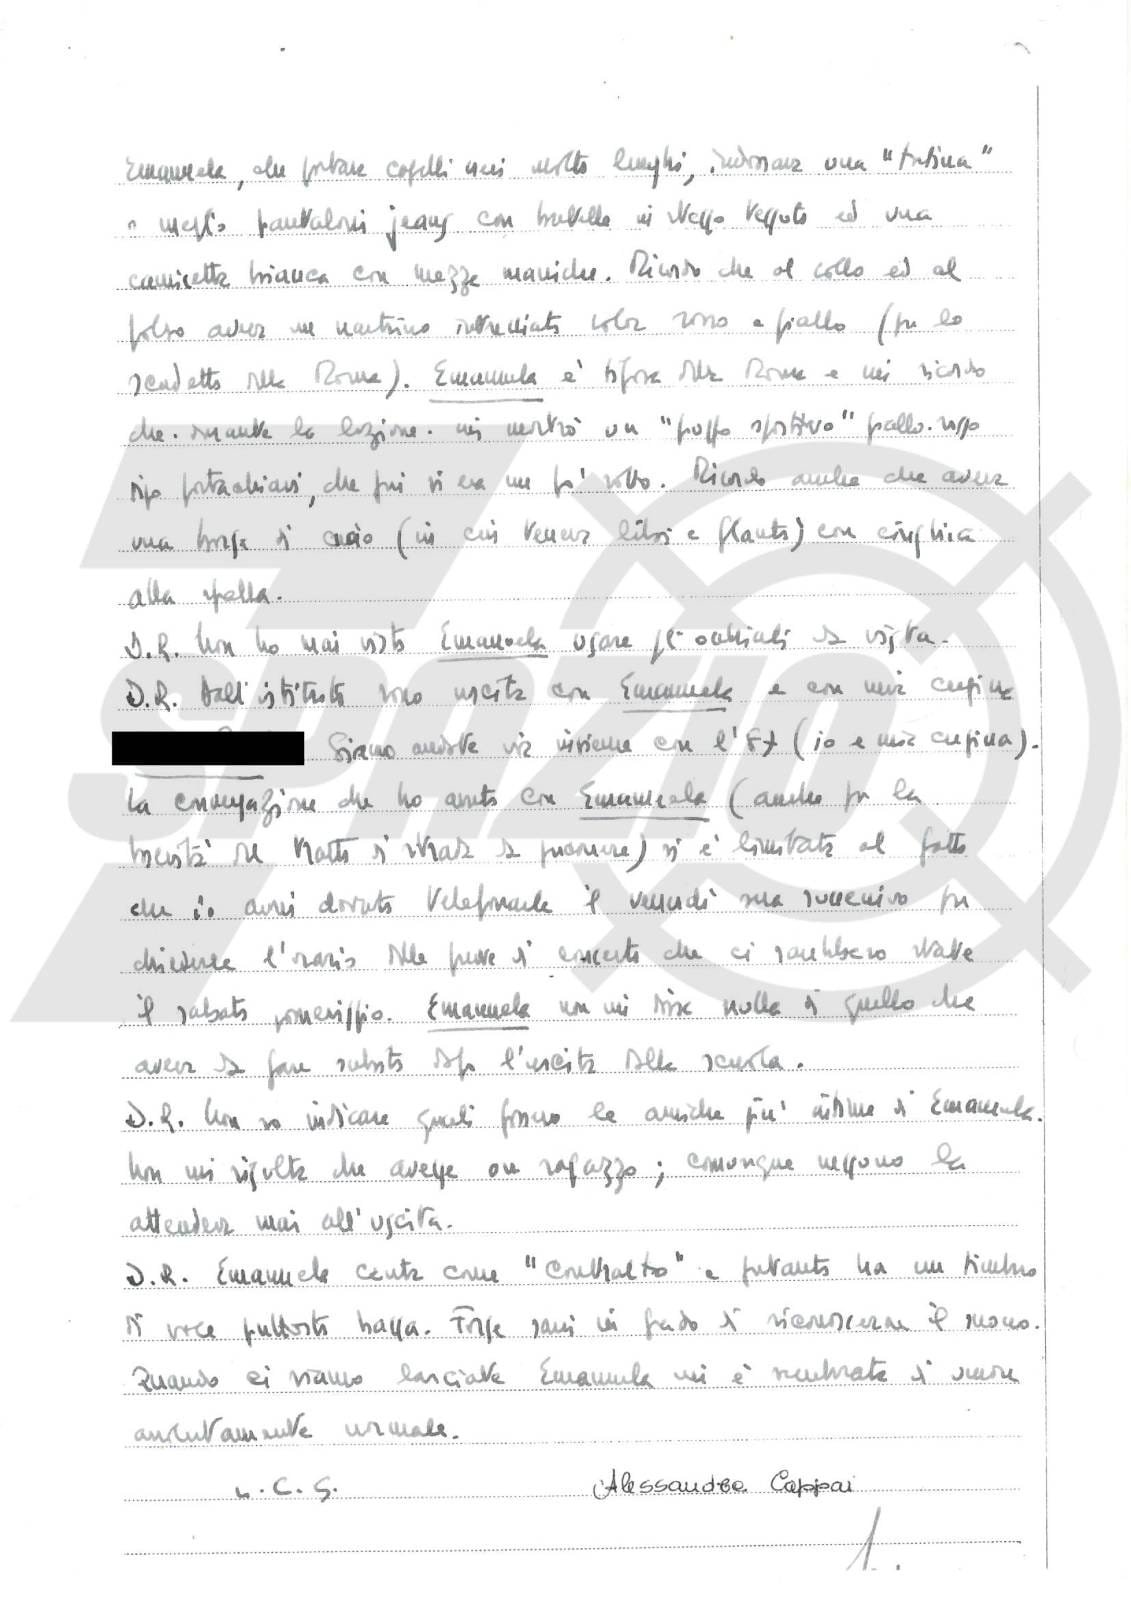 Emanuela, che portava capelli neri molto lunghi, indossava una "tutina"
o meglio pantaloni jeans con bretelle in stesso tessuto ed una
camicetta bianca con mezze maniche. Ricordo che al collo ed al
polso aveva un nastrino intrecciato color rosso e giallo (per lo
scudetto della Roma). Emanuela è tifosa della Roma e mi ricordo
che durante la lezione mi mostrò un "puffo sportivo" giallo-rosso
tipo portachiavi, che poi si era un po' rotto. Ricordo anche che aveva
una borsa di cuoio (in cui teneva libri e flauto) con cinghia
alla spalla.
D.R. Non ho mai visto Emanuela usare gli occhiali da vista.
D.R. Dall'istituto sono uscita con Emanuela e con mia cugina
Siamo andate via insieme con l'87 (io e mia cugina).
La conversazione che ho avuto con Emanuela (anche per la
brevità del tratto di strada da percorrere) si è limitata al fatto
che io avrei dovuto telefonarle il venerdì sera successivo per
chiederle l'orario delle prove di concerto che ci sarebbero state
il sabato pomeriggio. Emanuela non mi disse nulla di quello che
aveva da fare subito dopo l'uscita dalla scuola.
D.R. Non so indicare quali fossero le amiche più intime di Emanuela.
Non mi risulta che avesse un ragazzo; comunque nessuno la
attendeva mai all'uscita.
D.R. Emanuela canta come "contralto" e pertanto ha un timbro
di voce piuttosto bassa. Forse sarei in grado di riconoscerne il suono.
Quando ci siamo lasciate Emanuela mi è sembrata di umore
assolutamente normale.
L.C.S. Alessandra Cappai
SPAZIO